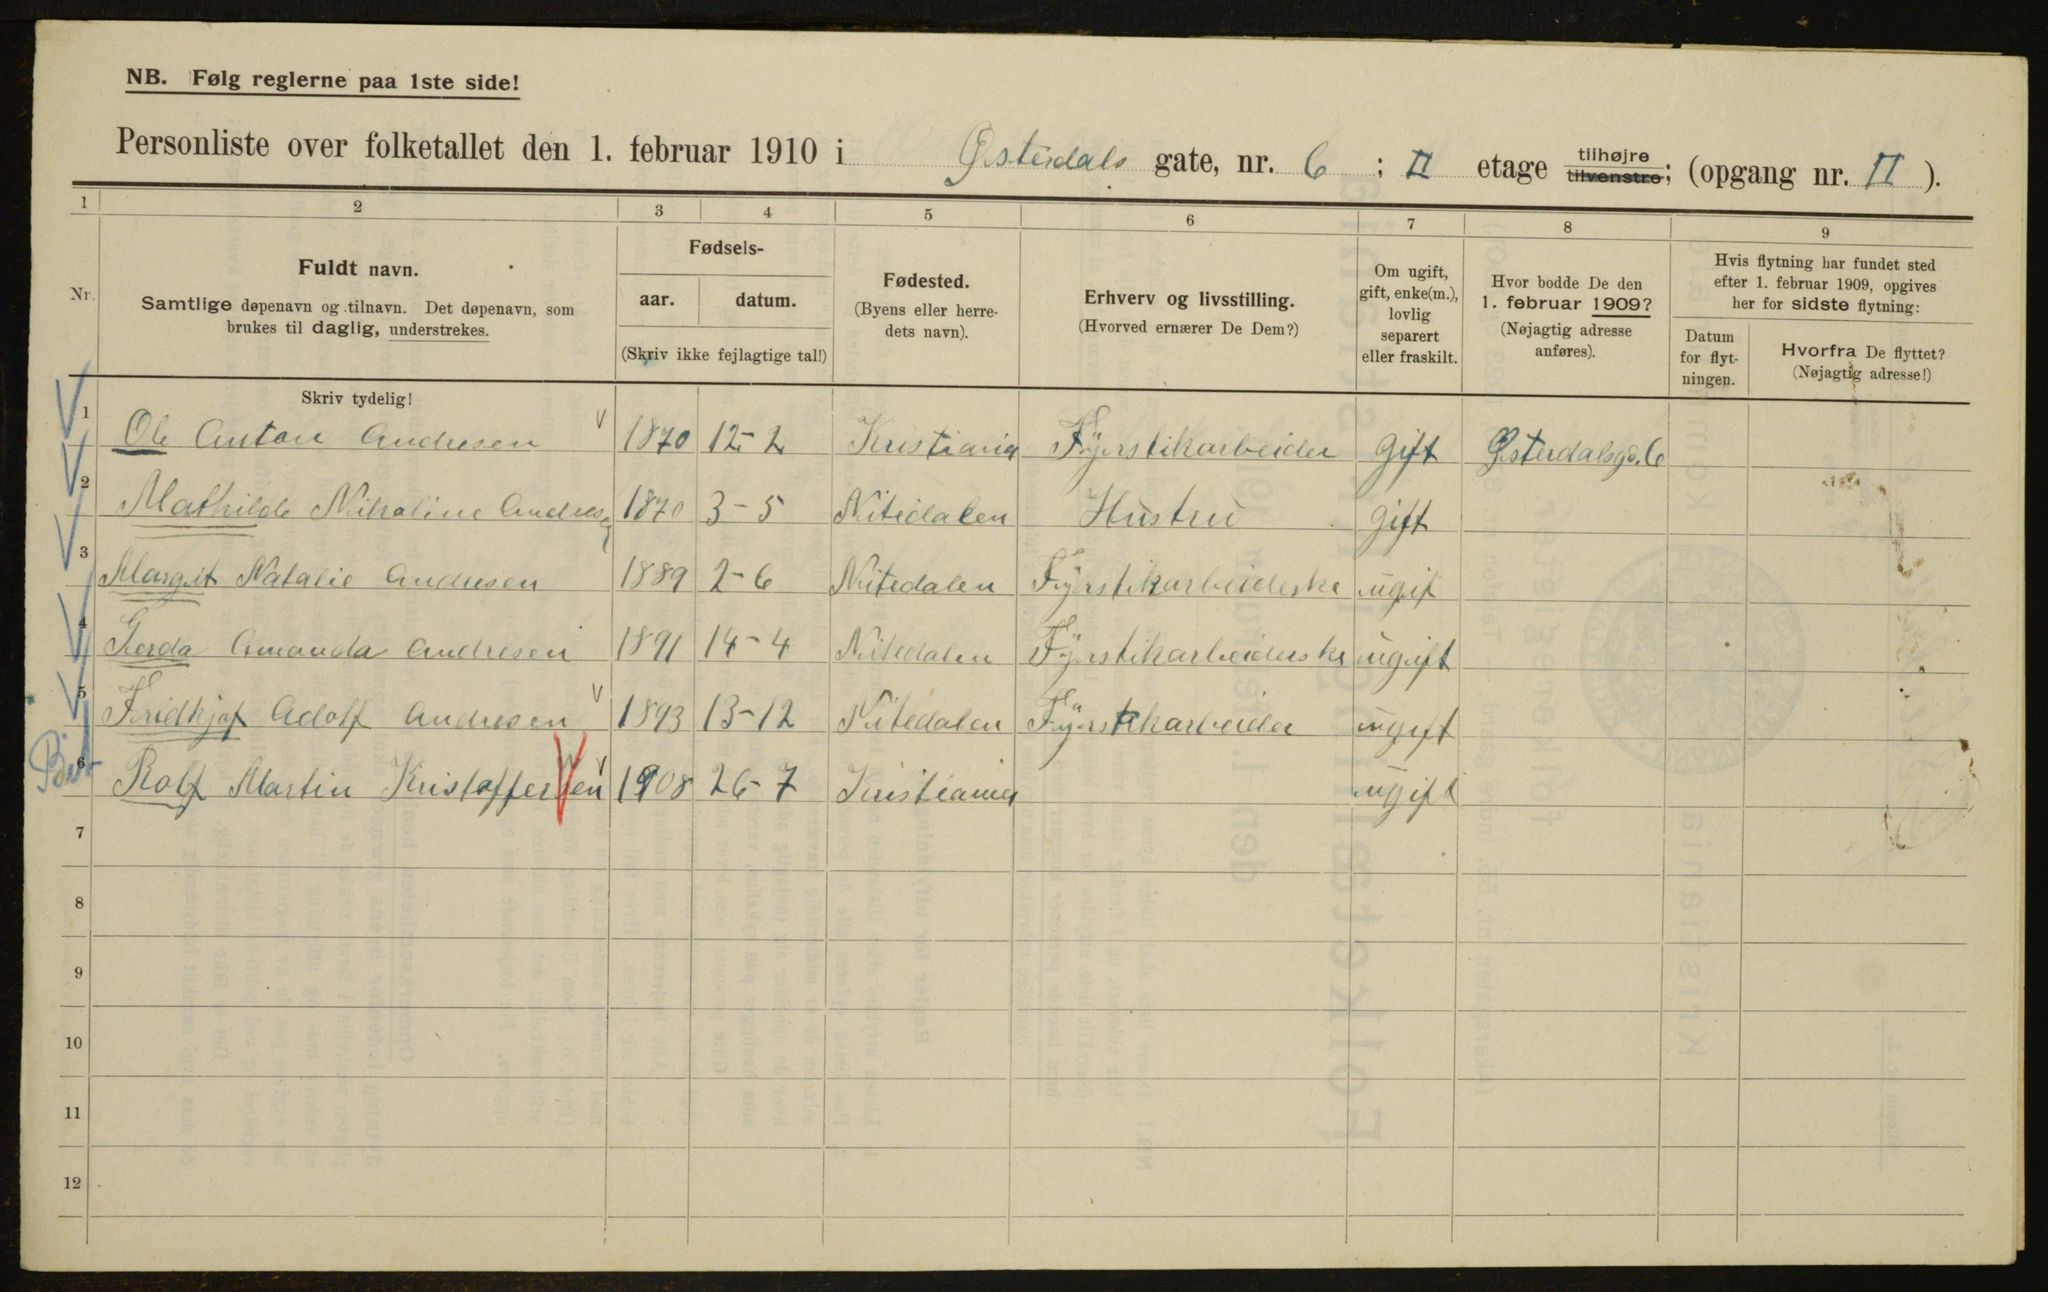 NB. Følg reglerne paa 1ste side!
Personliste over folketallet den 1. februar 1910 i Østerdals gate, nr. 6 ; II etage tilhøjre tilvenstre; (opgang nr. II ).
1 2 3 4 5 6 7 8 9
Nr.
Fuldt navn.
Samtlige døpenavn og tilnavn. Det døpenavn, som
brukes til daglig, understrekes.
Fødsels-
aar. datum.
(Skriv ikke fejlagtige tal!)
Fødested.
(Byens eller herre-
dets navn).
Erhverv og livsstilling.
(Hvorved ernærer De Dem?)
Om ugift,
gift, enke(m.),
lovlig
separert
eller fraskilt.
Hvor bodde De den
1. februar 1909?
(Nøjagtig adresse
anføres).
Hvis flytning har fundet sted
efter 1. februar 1909, opgives
her for sidste flytning:
Datum
for flyt-
ningen.
Hvorfra De flyttet?
(Nøjagtig adresse!)
Skriv tydelig!
1 Ole Anton Andresen 1870 12-2 Kristiania Fyrstikarbeider Gift Østerdalsgd. 6
2 Mathilde Nikoline Andresen 1870 3-5 Nitedalen Hustru gift
3 Margit Natalie Andresen 1889 2-6 Nitedalen Fyrstikarbeiderske ugif
4 Gerda Amanda Andresen 1891 14-4 Nitedalen Fyrstikarbeiderske ugift
5 Fridhjof Adolf Andresen 1893 13-12 Nitedalen Fyrstikarbeider ugift
6 Rolf Martin Kristoffersen 1908 26-7 Kristiania ugift
7
8
9
10
11
12